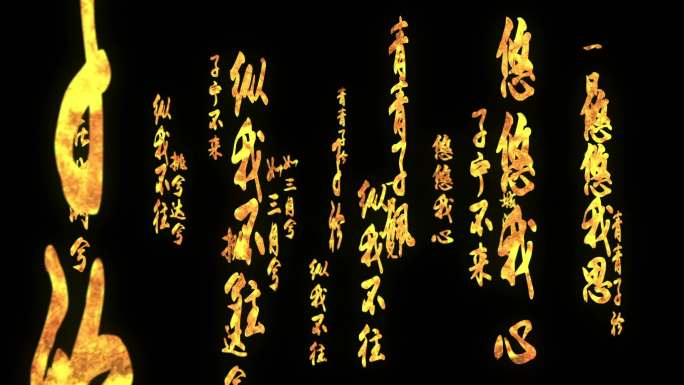 青青子衿
悠悠我思
一日
悠悠我心
子宁不来
悠悠我心
青青子佩
纵我不往
青青子衿
纵我不往
如三月兮
如三月兮
纵我不往
挑达兮
子宁不来
挑兮达兮
纵我不往
兮